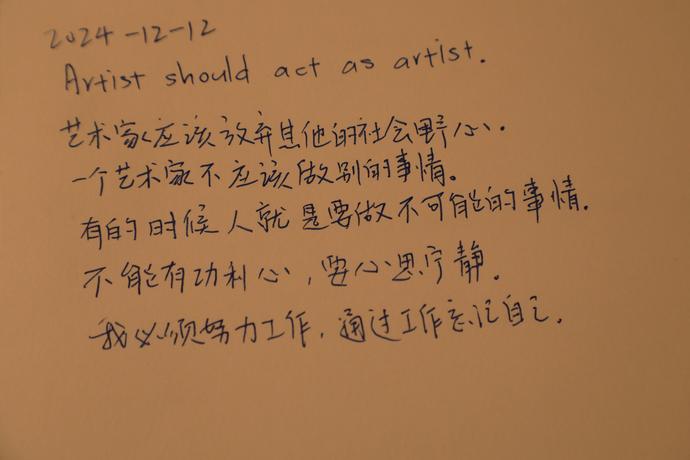 2024-12-12
Artist should act as artist.
艺术家应该放弃其他的社会野心.
一个艺术家不应该做别的事情。
有的时候人就是要做不可能的事情.
不能有功利心，要心思宁静.
我必须努力工作，通过工作忘记自己.